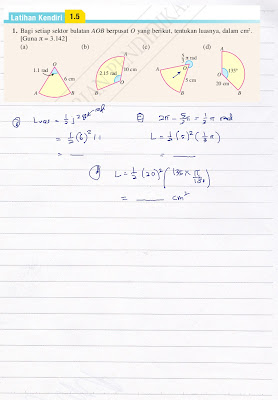 Latihan Kendiri 1.5
1. Bagi setiap sektor bulatan AOB berpusat O yang berikut, tentukan luasnya, dalam cm².
[Guna π = 3.142]
(a) (b) (c) (d)
O
1.1 rad
6 cm
A B
B
10 cm
2.15 rad
O
A
rad
O
5 cm
A
B
A
135°
O
20 cm
B
Luas = 1/2 j²
= 1/2 (6)²
=
2π - = 1/3 π rad
L = 1/2 (5)² (1/3 π)
=
L = 1/2 (20)² (135 × π/180)
= cm²